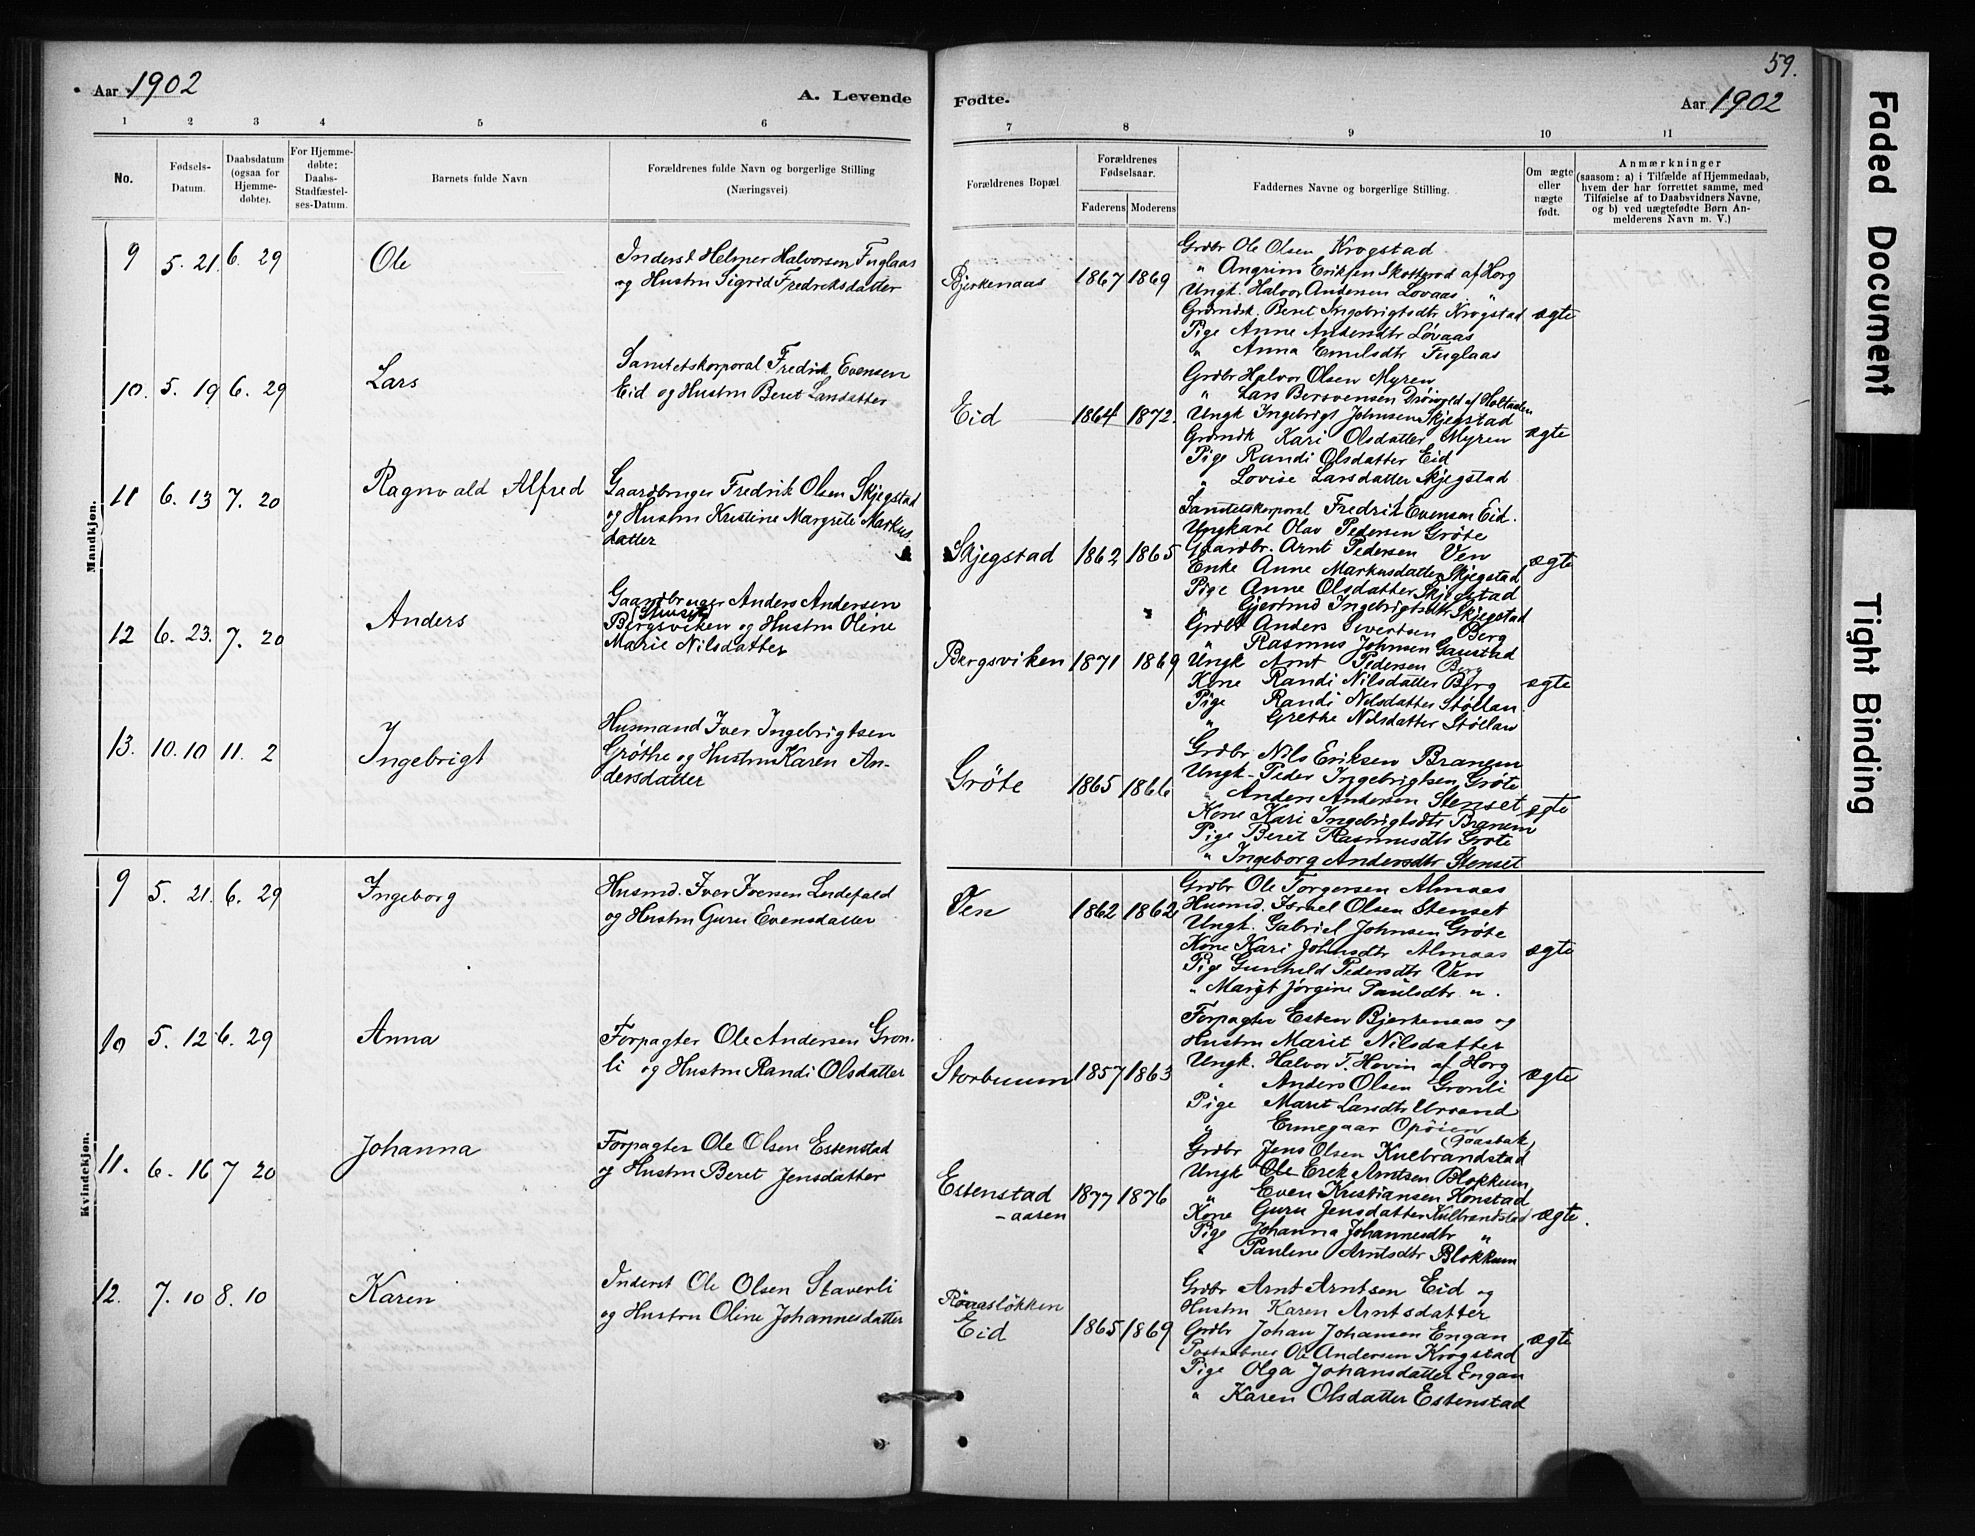 Aar 1902
A. Levende
1 2 3 4 5 6
No.
Fødsels-
Datum.
Daabsdatum
(ogsaa for
Hjemme-
døbte).
For Hjemme-
døbte:
Daabs-
Stadfæstel-
ses-Datum.
Barnets fulde Navn
Forældrenes fulde Navn og borgerlige Stilling
(Næringsvei)
Mandkjøn.
9 5. 21. 6. 29 Ole
Inderst Helmer Halvorsen Fuglaas
og Hustru Sigrid Fredriksdatter
10. 5. 19 6. 29 Lars
Sanitetskorporal Fredrik Evensen
Eid og Hustru Beret Larsdatter
11 6. 13 7. 20 Ragnvald Alfred
Gaardbruger Fredrik Olsen Skjegstad
og Hustru Kristine Margrete Markus
datter
12 6. 23. 7. 20 Anders
Gaardbruger Anders Andersen
Bergsviken og Hustru Oline
Marie Nilsdatter
13. 10. 10 11. 2 Ingebrigt
Husmand Iver Ingebrigtsen
Grøthe og Hustru Karen An-
dersdatter
Kvindekjøn.
9 5. 21. 6. 29 Ingeborg
Husmd. Iver Iversen Lidefald
og Hustru Guru Evensdatter
10 5. 12 6. 29 Anna
Forpagter Ole Andersen Gron-
li og Hustru Randi Olsdatter
11. 6. 16 7 20 Johanna
Forpagter Ole Olsen Estenstad
og Hustru Beret Jensdatter
12. 7. 10 8. 10 Karen
Inderst Ole Olsen Staverli
og Hustru Oline Johannesdatter
59.
Fødte.
Aar 1902
7 8 9 10 11
Forældrenes Bopæl.
Forældrenes
Fødselsaar.
Faderens Moderens
Faddernes Navne og borgerlige Stilling.
Om ægte
eller
uægte
født.
Anmærkninger
(saasom: a) i Tilfælde af Hjemmedaab,
hvem der har forrettet samme, med
Tilføielse af to Daabsvidners Navne,
og b) ved uægtefødte Børn An-
melderens Navn m. V.)
Bjerkenaas 1867 1869 ægte
Grdbr Ole Olsen Krogstad
" Angrim Eriksen Skotterod af Horg
Ungk. Halvor Andersen Lovaas "
Grdmdsk. Beret Ingebrigtsdtr Krogstad
Pige Anne Andersdtr Løvaas
" Anna Emilsdtr Fuglaas
Eid 1864 1872. ægte
Grdbr Halvor Olsen Myren
" Lars Bersvensen Drøivold af Holtaalen
Ungk Ingebrigt Johnsen Skjegstad
Grdmdk Kari Olsdatter Myren
Pige Randi Olsdatter Eid
" Lovise Larsdatter Skjegstad
Skjegstad 1862 1865 ægte
Sanitetskorporal Fredrik Evensen Eid.
Ungkarl Olav Pedersen Grôte
Gaardbr. Arnt Pedersen Ven
Enke Anne Markusdatter Skjegstad
Pige Anne Olsdatter Skjegstad
" Gjertrud Ingebrigtsdtr Skjegstad
Bergsviken 1871 1869 ægte
Grdbr Anders Sivertsen Berg
" Rasmus Johnsen Gaustad
Ungk Arnt Pedersen Berg
Kone Randi Nilsdatter Berg
Pige Randi Nilsdatter Støllan
" Grethe Nilsdatter Støllan
Grôte 1865 1866 ægte
Grdbr Nils Eriksen Branem
Ungk. Peder Ingebrigtsen Grôte
" Anders Andersen Stenset
Kone Kari Ingebrigtsdtr Branem
Pige Beret Rasmusdtr Grote
" Ingeborg Andersdtr Stenset
Ven 1862 1862 ægte
Grdbr Ole Torgersen Almaas
Husmd. Israel Olsen Stenset
Ungk. Gabriel Johnsen Grôte
Kone Kari Johnsdtr Almaas
Pige Gunhild Pedersdtr Ven
" Margt Jörgine Paulsdtr "
Storbuum 1857 1863 ægte
Forpagter Esten Bjerkenaas og
Hustru Marit Nilsdatter
Ungk. Halvor T. Hovin af Horg
" Anders Olsen Gronli
Pige Maret Larsdtr
" Ermegaar Opøien
Estenstad
-aaren 1877 1876 ægte.
(Gaasbak)
Grdbr Jens Olsen Kulbrandstad
Ungk Ole Erek Arntsen Blokkum
" Even Kristiansen Hønstad
Kone Guru Jensdatter Kulbrandstad
Pige Johanna Johannesdtr "
" Pauline Arntsdtr Blokkum
Rônasløkken
Eid 1865 1869 ægte
Grdbr Arnt Arntsen Eid og
Hustru Karen Arntsdatter
Grdbr Johan Johansen Engan
Postaabner Ole Andersen Krogstad
Pige Olga Johansdatter Engan
" Karen Olsdatter Estenstad
Faded Document
Tight Binding